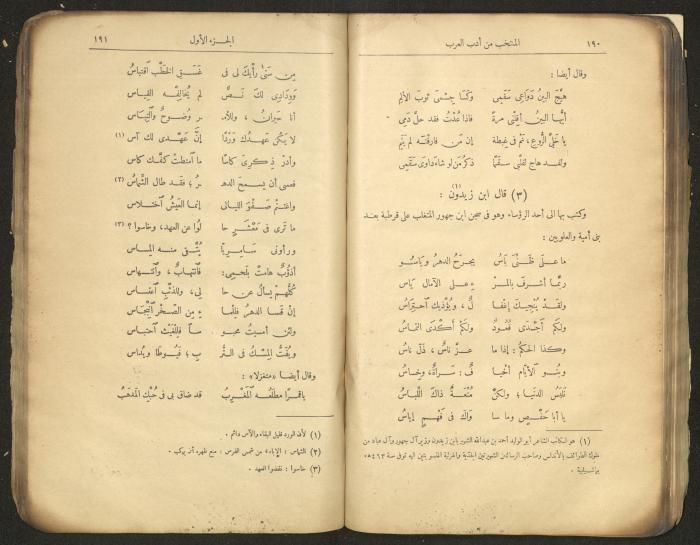 ١٩٠ المنتخب من أدب العرب
وقال أيضا :
هيّج البينُ دَوَاعِى سَقَمِى وكَسَا جِسْمِىَ ثوبَ الألمِ
أيّها البينُ أقِلْنى مرةً فاذا عُدْتُ فقد حلَّ دمى
يا خَلِىَّ الرُّوعِ ، نَمْ فى غِبطة إن مَن فارقْتَه لم يَنَمِ
ولقد هاج لقلبى سَقَمًا ذكرُ مَن لو شاء داوَى سَقَمِى
(٣) قال ابن زيدون : (١)
وكتب بها الى أحد الرؤساء وهو فى سجن ابن جهور المتغلب على قرطبة بعد
بنى أمية والعلويين :
ما على ظَنِّىَ باسُ يجرَحُ الدهرُ وياسُو
ربّما أشرفَ بالمرْ ءِ على الآمال ياسُ
ولقدْ يُنْجيكَ إغفا لٌ ، ويُؤذيك احتِراسُ
ولكمْ أجْدَى قُعُودٌ ولكمْ أكْدَى التماسُ
وكذا الحكمُ : إذا ما عزَّ ناسٌ ، ذلّ ناسُ
وبنُو الأيّامِ أخيا فٌ : سَراةٌ ، وخِساسُ
نَلبَسُ الدنيا ؛ ولكنْ مُتْعَةٌ ذاكَ اللّباسُ
يا أبا حَفْصٍ وما سا واكَ فى فَهْمٍ إياسُ
(١) هو الكاتب الشاعر أبو الوليد أحمد بن عبد الله الشهير بابن زيدون وزير آل جهور وآل عباد من
ملوك الطوائف بالأندلس وصاحب الرسالتين الشهيرتين الجدّية والهزلية توفى سنة ٤٦٣ هـ
بإشبيلية .
الجزء الأول ١٩١
مِن سَنَى رأيِكَ لى فى غَسَقِ الخَطْبِ اقتباسُ
وودادِى لكَ نَصٌّ لم يُخالِفْه القِياسُ
أنا حَيرانُ ، وللأمْـ ـرِ وُضوحٌ والتِباسُ
لا يكُنْ عهدُك وَرْدًا إنّ عَهْدِى لك آس (١)
وأدرْ ذِكرِىَ كاسًا ما امتطتْ كفَّكَ كاس
فعسى أن يسمحَ الدهـ ـرُ ؛ فقد طال الشِّماسُ (٢)
واغتنمْ صَفْوَ الليالى إنما العَيشُ اختلاس
ما تَرى فى مَعْشَرٍ حا لُوا عن العهد ، وخاسوا ؟ (٣)
ورأونى سَامِرِيًّا يُتَّقى منه المِساس
أذْؤُبٌ هامتْ بلَحمِى : فانتِهابٌ ، وانتهاس
كلُّهمْ يسأل عن حا لى ، وللذئبِ اعتساس
إنْ قسا الدهرُ فلِلما ءِ مِنَ الصّخْرِ انْبِجاس
ولئن أمسيتُ محبو سًا فللغَيْثِ احتباس
ويُفَتُّ المسْكُ فى التُّرْ بِ ؛ فيُوطَا ويُداس
وقال أيضا «متغزلا» :
ياقمرًا مَطلَعُه المَغْرِبُ قد ضاق بى فى حُبّكَ المَذهَبُ
(١) لأن الورد قليل البقاء والآس دائم .
(٢) الشماس : الإباء من شمس الفرس : منع ظهره أن يركب .
(٣) خاسوا : نقضوا العهد .